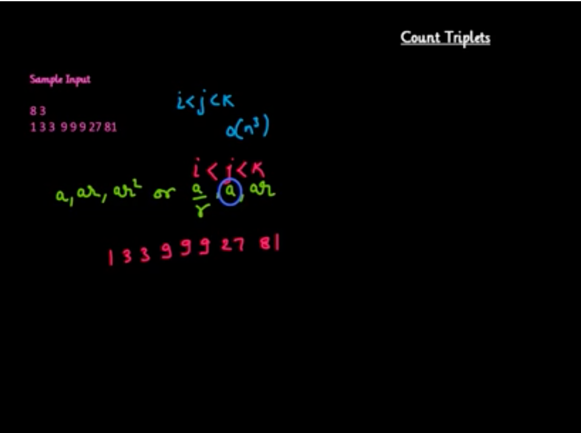 Count Triplets
Sample Input
8 3
1 3 3 9 9 9 27 81
i<j<k
O(n³)
i<j<k
a, ar, ar² or a/r, a, ar
1 3 3 9 9 9 27 81